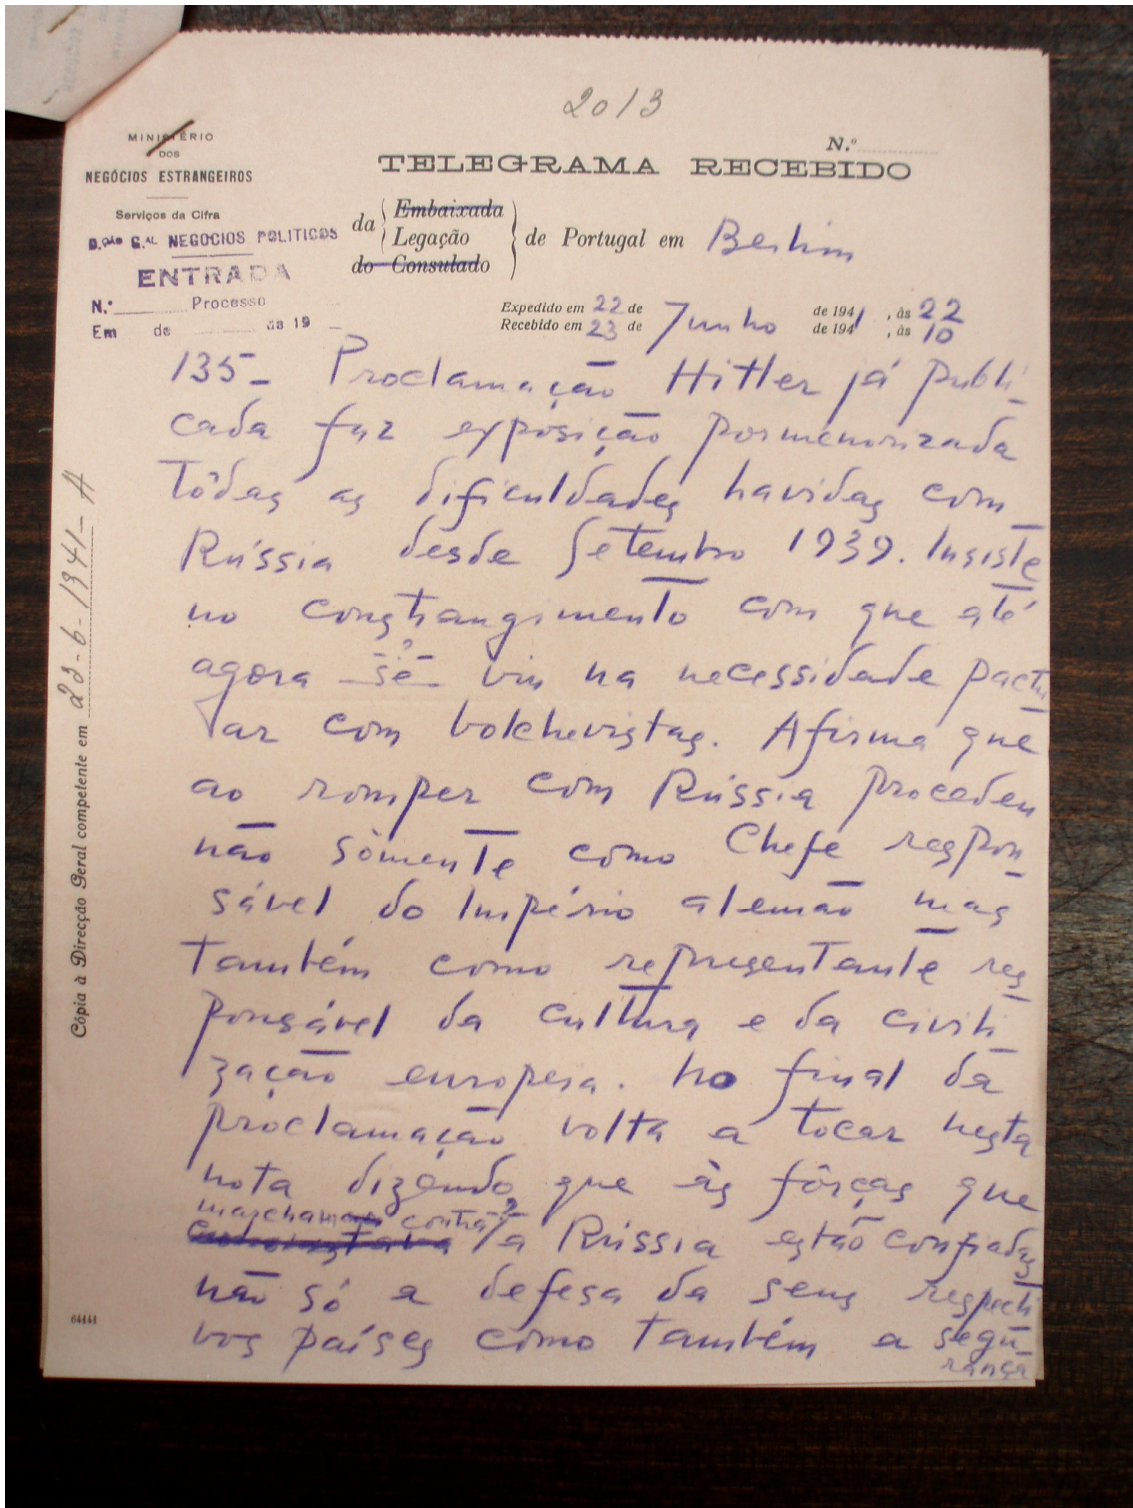 2013
MINISTÉRIO
DOS
NEGÓCIOS ESTRANGEIROS
Serviços da Cifra
D.ÇÃO G.AL NEGOCIOS POLITICOS
ENTRADA
N.º Processo
Em de de 19
N.º
TELEGRAMA RECEBIDO
da Embaixada
Legação
do Consulado
de Portugal em Berlim
Expedido em 22 de Junho de 1941, às 22
Recebido em 23 de de 194 , às 10
135 - Proclamação Hitler já publi-
cada faz exposição pormenorizada
tôdas as dificuldades havidas com
Rússia desde Setembro 1939. Insiste
no constrangimento com que até
agora -sé?- viu na necessidade pactu-
ar com bolchevistas. Afirma que
ao romper com Rússia procedeu
não sòmente como Chefe respon-
sável do Império alemão mas
também como representante res-
ponsável da cultura e da civili-
zação europeia. No final da
proclamação volta a tocar nesta
nota dizendo que às fôrças que
marcham contra?
a Rússia estão confiadas
não só a defesa da seus respecti
vos países como também a segu-
rança
Cópia à Direcção Geral competente em 23-6-1941-A
64141